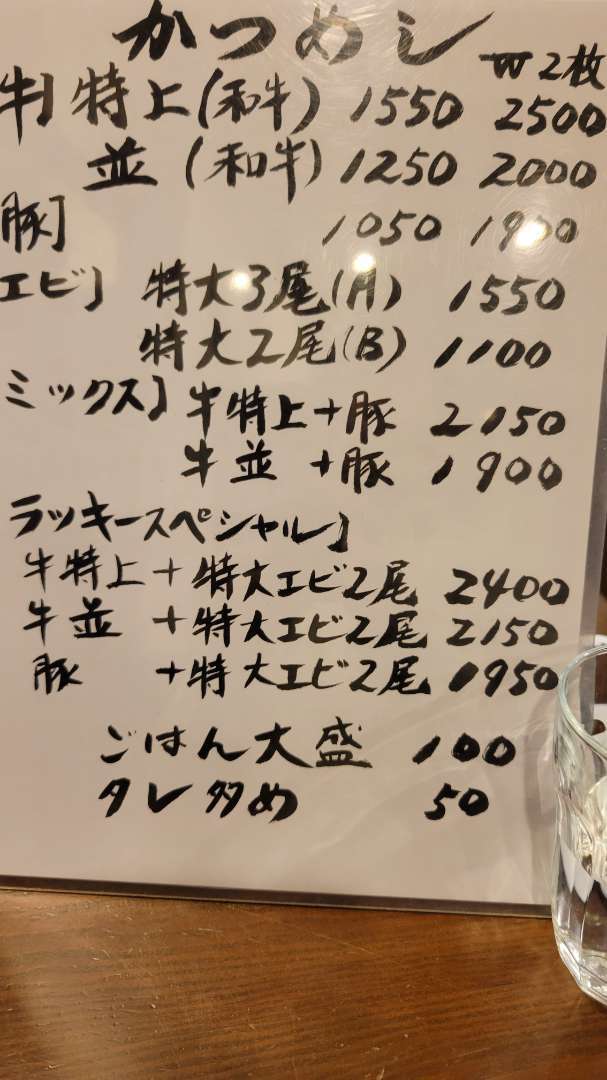 かつめし
W2枚
牛】特上(和牛) 1550 2500
並(和牛) 1250 2000
豚】 1050 1900
エビ】 特大3尾(A) 1550
特大2尾(B) 1100
ミックス】牛特上+豚 2150
牛並+豚 1900
ラッキースペシャル】
牛特上+特大エビ2尾 2400
牛並+特大エビ2尾 2150
豚+特大エビ2尾 1950
ごはん大盛 100
タレ多め 50